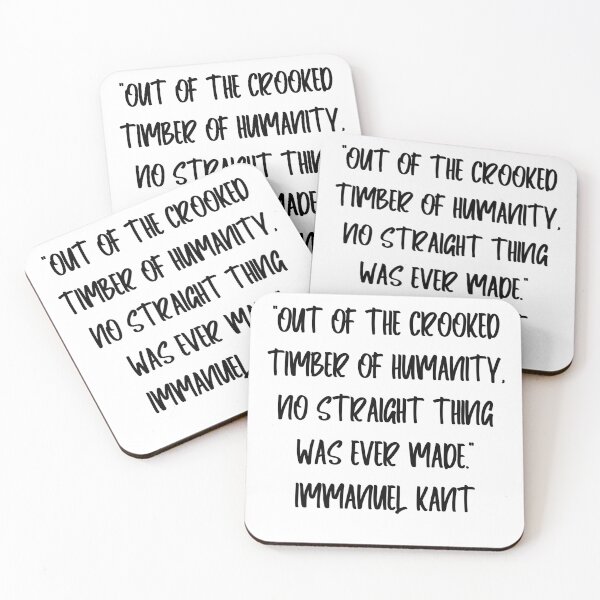 "OUT OF THE CROOKED
TIMBER OF HUMANITY,
NO STRAIGHT
MADE
"OUT OF THE CROOKED
TIMBER OF HUMANITY,
NO STRAIGHT THING
WAS EVER MADE."
"OUT OF THE CROOKED
TIMBER OF HUMANITY,
NO STRAIGHT THING
WAS EVER
IMMANUEL
"OUT OF THE CROOKED
TIMBER OF HUMANITY,
NO STRAIGHT THING
WAS EVER MADE."
IMMANUEL KANT